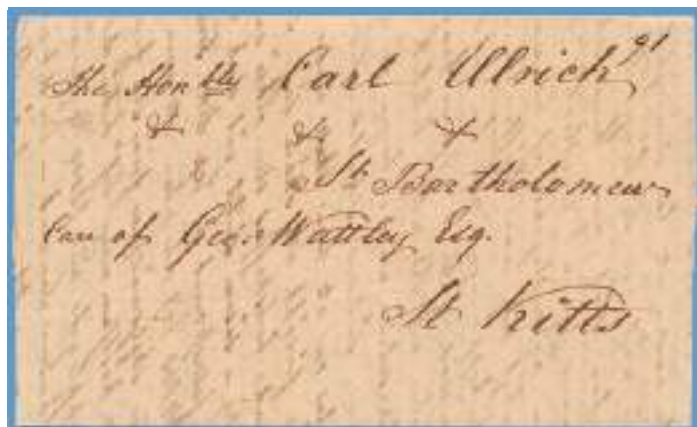 The Honble Carl Ulrich
& & &
St Bartholomew
Care of Geo: Wattley Esq.
St Kitts